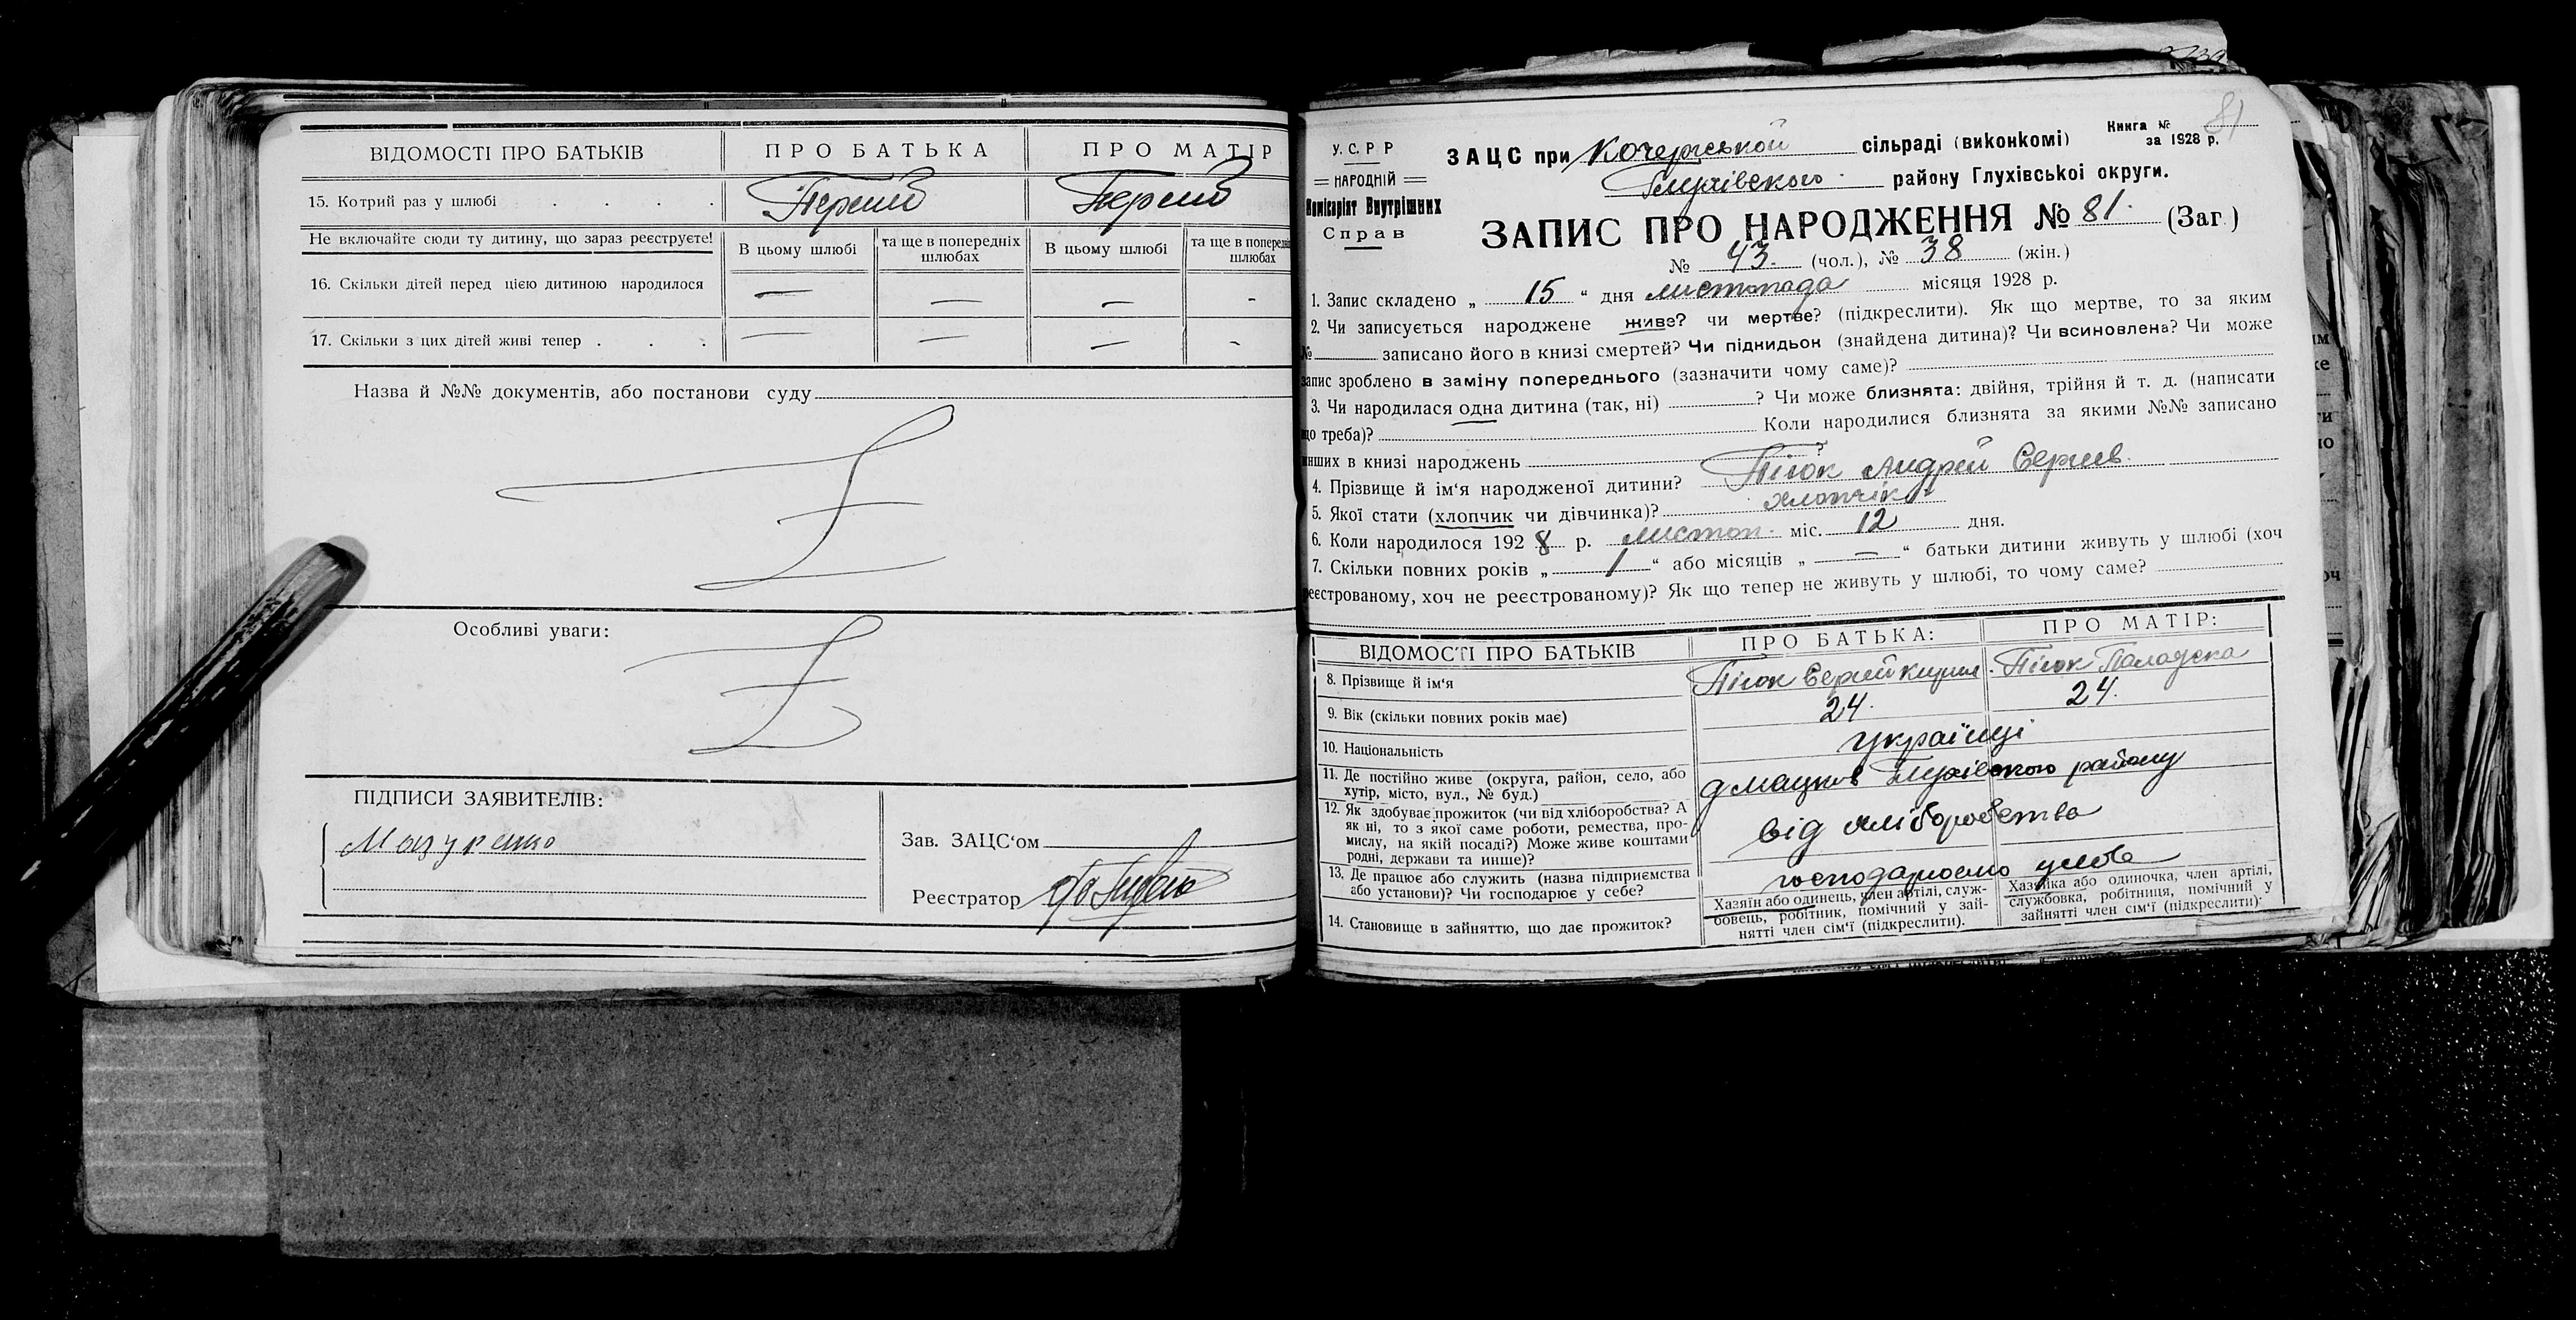 ВІДОМОСТІ ПРО БАТЬКІВ ПРО БАТЬКА ПРО МАТІР
15. Котрий раз у шлюбі . . . . Перший Перший
Не включайте сюди ту дитину, що зараз реєструєте! В цьому шлюбі та ще в попередніх шлюбах В цьому шлюбі та ще в попередніх шлюбах
16. Скільки дітей перед цією дитиною народилося — — — -
17. Скільки з цих дітей живі тепер . . . — — — -
Назва й №№ документів, або постанови суду
Особливі уваги:
ПІДПИСИ ЗАЯВИТЕЛІВ:
Мазуренко
Зав. ЗАЦС'ом
Реєстратор
81
У. С. Р Р
НАРОДНІЙ
Комісаріят Внутрішних
Справ
Книга №
за 1928 р.
ЗАЦС при Кочерзькой сільраді (виконкомі)
Глухівского району Глухівської округи.
ЗАПИС ПРО НАРОДЖЕННЯ № 81. (Заг.)
№ 43. (чол.), № 38 (жін.)
1. Запис складено „ 15 “ дня листопада місяця 1928 р.
2. Чи записується народжене живе? чи мертве? (підкреслити). Як що мертве, то за яким
№ записано його в книзі смертей? Чи підкидьок (знайдена дитина)? Чи всиновлена? Чи може
запис зроблено в заміну попереднього (зазначити чому саме)?
3. Чи народилася одна дитина (так, ні) ? Чи може близнята: двійня, трійня й т. д. (написати
що треба)? Коли народилися близнята за якими №№ записано
инших в книзі народжень ?
4. Прізвище й ім'я народженої дитини? Пігок Андрей Сергеев.
5. Якої стати (хлопчик чи дівчинка)? хлопчік
6. Коли народилося 1928 р. листоп. міс. 12 дня.
7. Скільки повних років „ 1 “ або місяців „ — “ батьки дитини живуть у шлюбі (хоч
реєстрованому, хоч не реєстрованому)? Як що тепер не живуть у шлюбі, то чому саме?
ВІДОМОСТІ ПРО БАТЬКІВ ПРО БАТЬКА: ПРО МАТІР:
8. Прізвище й ім'я Пігок Сергей Кирил. Пігок Палажка
9. Вік (скільки повних років має) 24. 24.
10. Національність Українці
11. Де постійно живе (округа, район, село, або
хутір, місто, вул., № буд.) Глухівского району
12. Як здобуває прожиток (чи від хліборобства? А
як ні, то з якої саме роботи, ремества, про-
мислу, на якій посаді?) Може живе коштами
родні, держави та инше)? від хліборобства
13. Де працює або служить (назва підприємства
або установи)? Чи господарює у себе? господарюємо у себе
14. Становище в зайняттю, що дає прожиток?
Хазяїн або одинець, член артілі, служ-
бовець, робітник, помічний у зай-
нятті член сім'ї (підкреслити).
Хазяйка або одиночка, член артілі,
службовка, робітниця, помічний у
зайнятті член сім'ї (підкреслити).